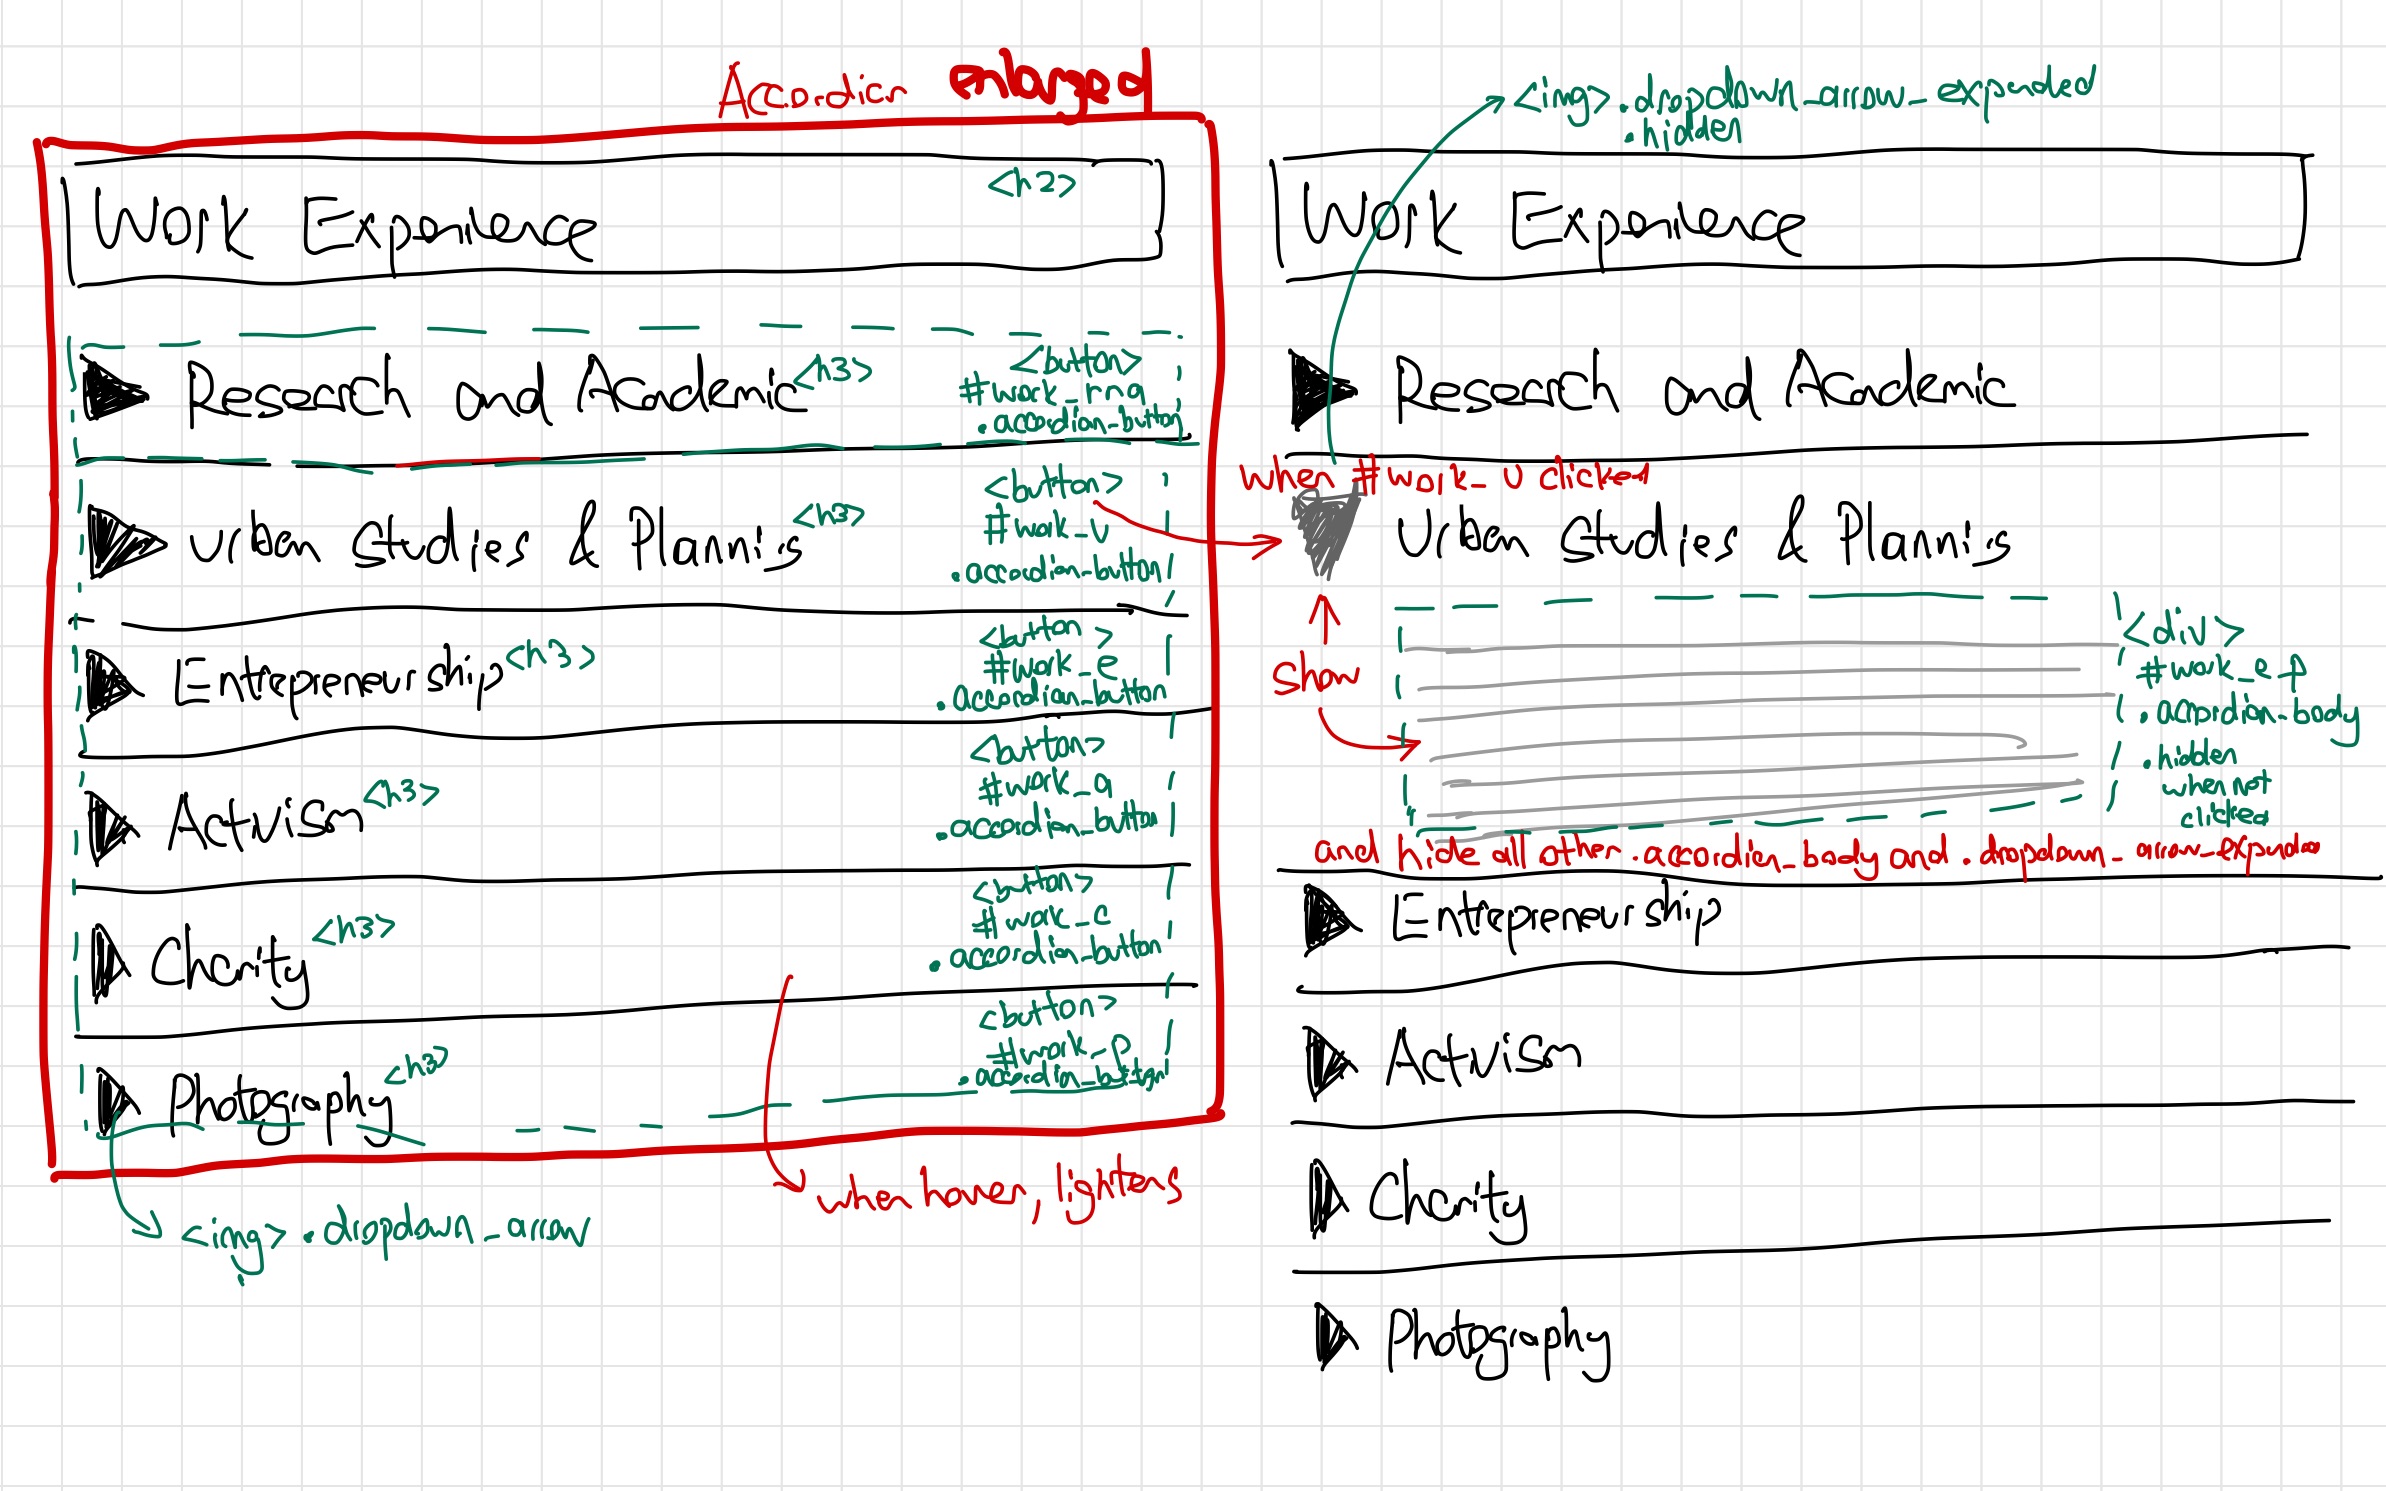 Accordion enlarged
Work Experience <h2>
Research and Academic <h3>
<button>
#work_rna
.accordian_button
Urban Studies & Planning <h3>
<button>
#work_u
.accordian_button
Entrepreneurship <h3>
<button>
#work_e
.accordian_button
Activism <h3>
<button>
#work_a
.accordian_button
Charity <h3>
<button>
#work_c
.accordian_button
Photography <h3>
<button>
#work_p
.accordian_button
<img> .dropdown_arrow
when hover, lightens
<img> .dropdown_arrow_expanded
.hidden
Work Experience
Research and Academic
when #work_u clicked
Urban Studies & Planning
show
<div>
#work_e_p
.accordian_body
.hidden
when not
clicked
and hide all other .accordian_body and .dropdown_arrow_expanded
Entrepreneurship
Activism
Charity
Photography